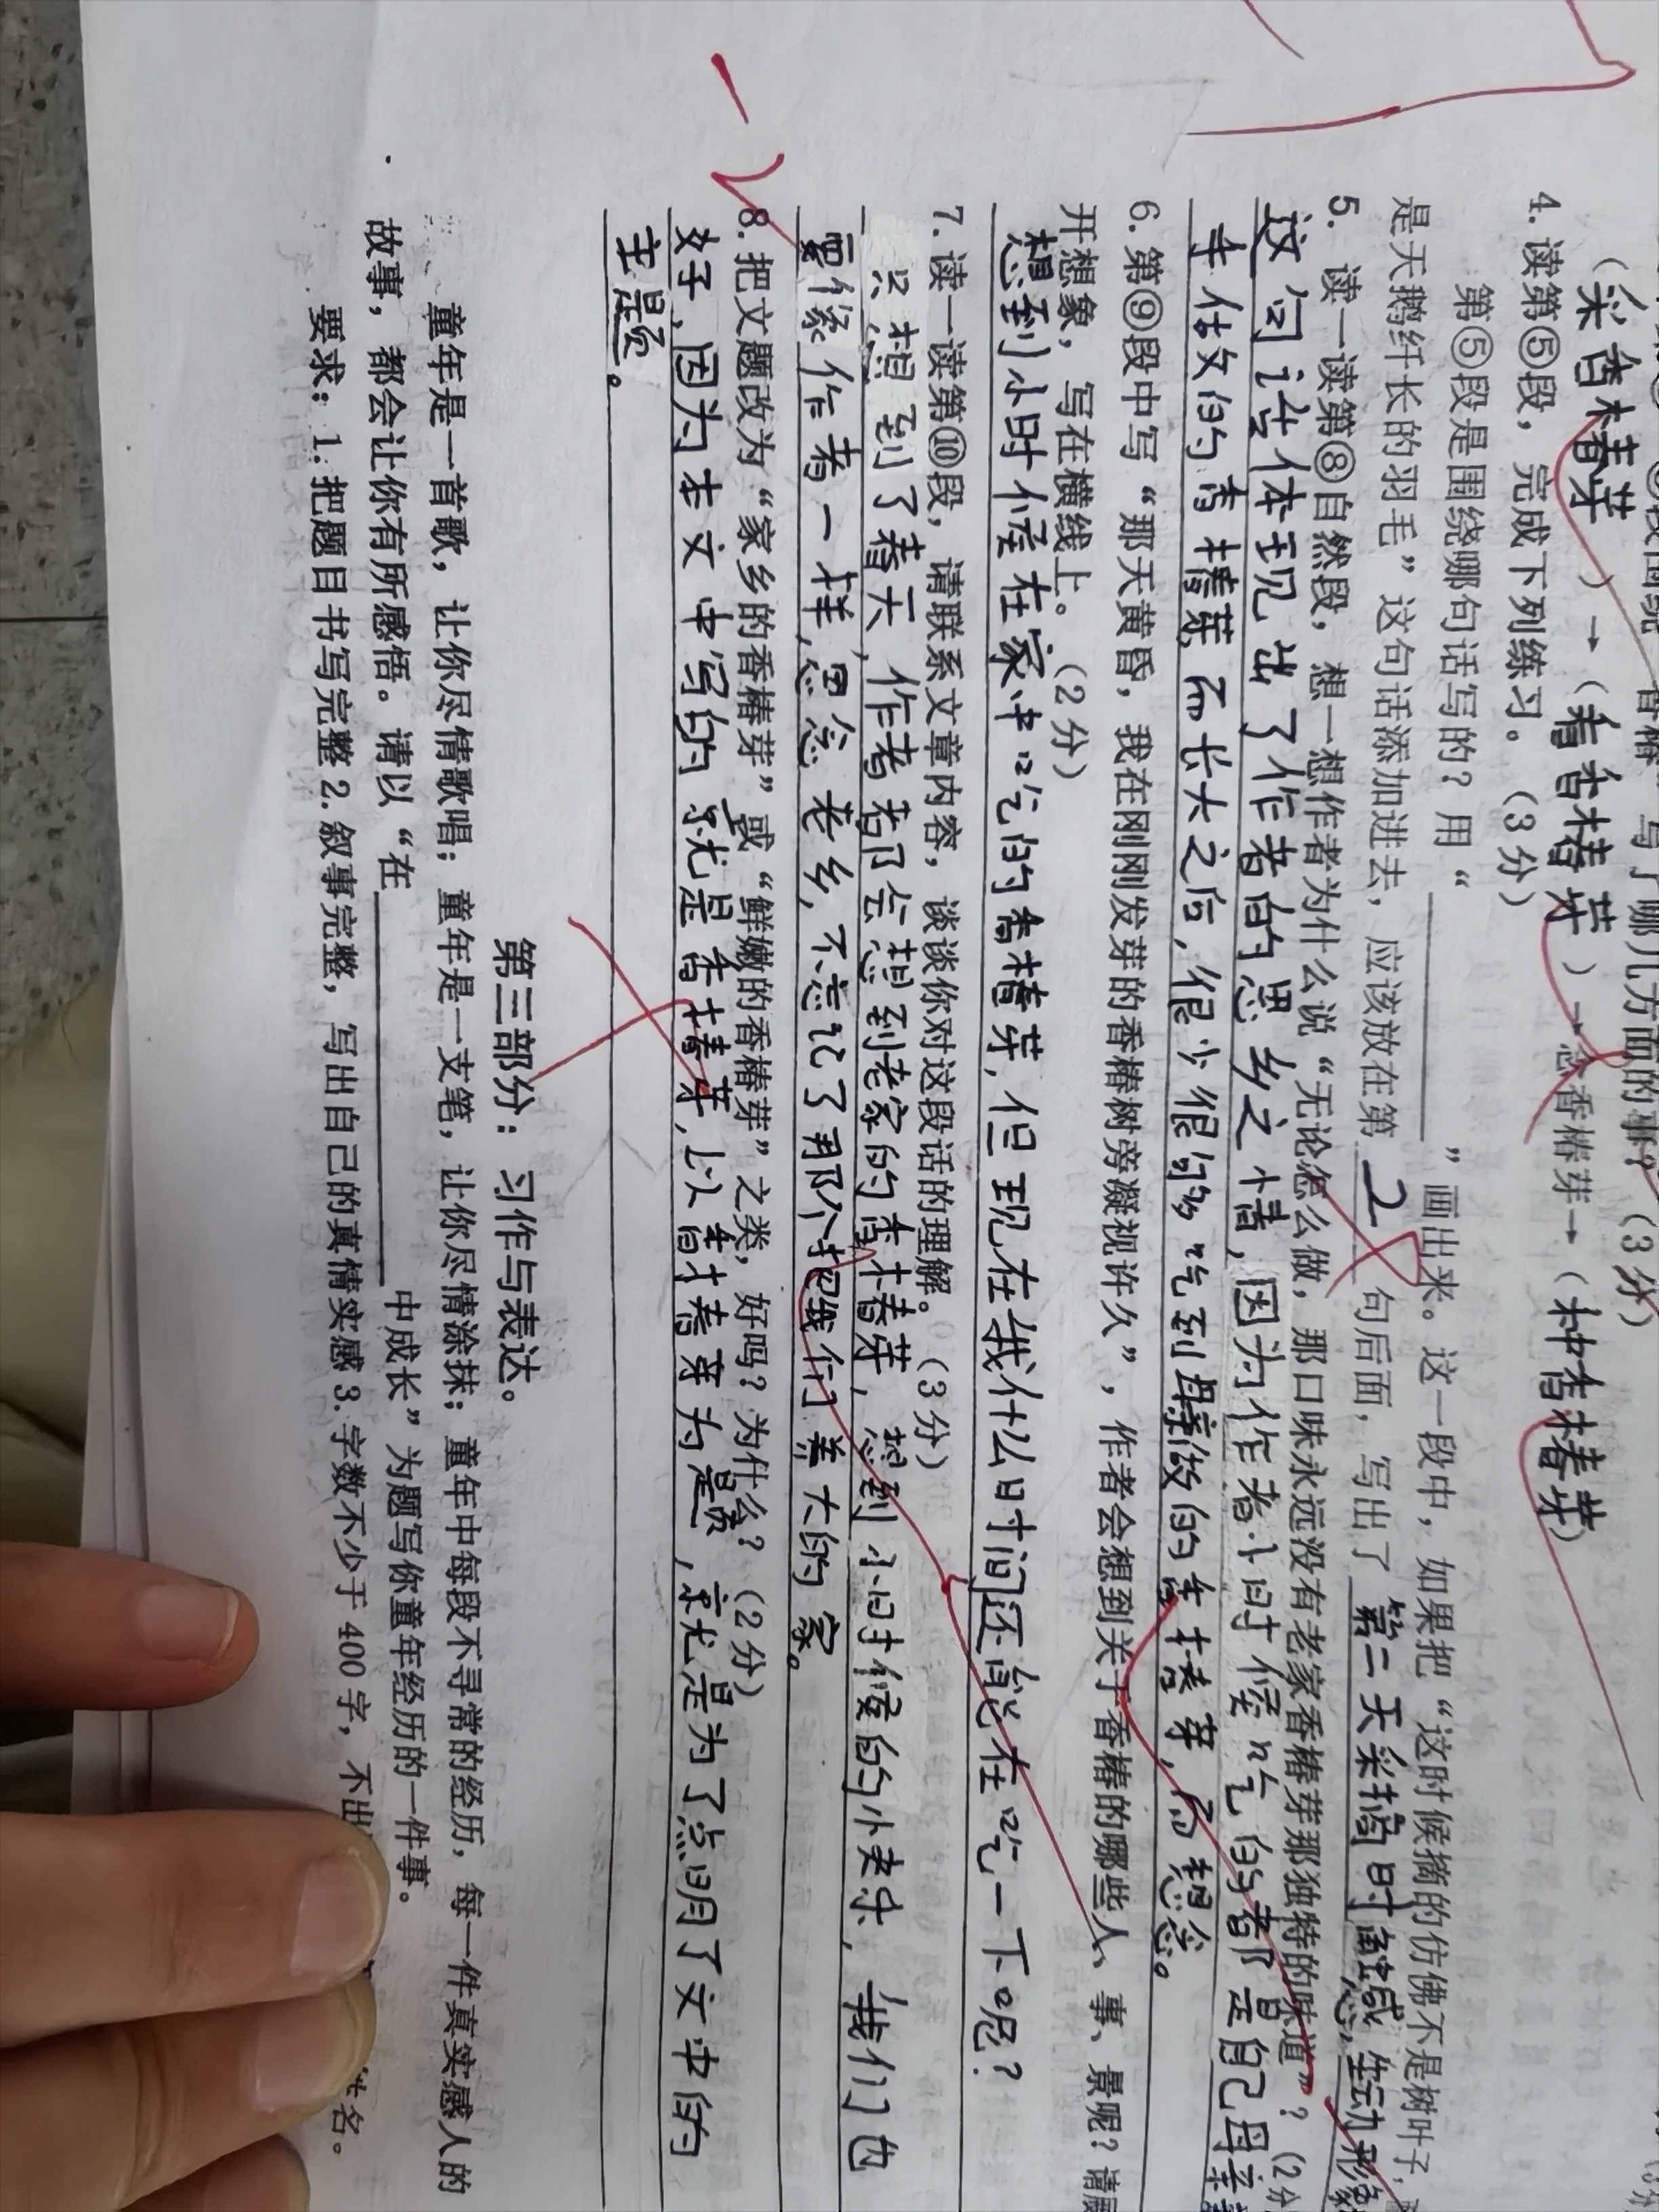 (采香椿芽)→(看香椿芽)→念香椿芽→(种香椿芽)
4. 读第⑤段，完成下列练习。(3分)
第⑤段是围绕哪句话写的？用“______”画出来。这一段中，如果把“这时候摘的仿佛不是树叶子，
是天鹅纤长的羽毛”这句话添加进去，应该放在第 2 句后面，写出了第二天采摘时触感，生动形象
5. 读一读第⑧自然段，想一想作者为什么说“无论怎么做，那口味永远没有老家香椿芽那独特的味道”？(2分
这句话体现出了作者的思乡之情，因为作者小时候吃的都是自己母亲
手做的香椿芽，而长大之后，很少很少吃到母亲做的香椿芽，而想念。
6. 第⑨段中写“那天黄昏，我在刚刚发芽的香椿树旁凝视许久”，作者会想到关于香椿的哪些人、事、景呢？请展
开想象，写在横线上。(2分)
想到小时候在家中吃的香椿芽，但现在我什么时间还能在吃一下呢？
7. 读一读第⑩段，请联系文章内容，谈谈你对这段话的理解。(3分)
只想到了春天，作者都会想到老家的香椿芽，想到小时候的小快乐，我们也
要像作者一样，思念老乡，不忘记了那个把我们养大的家。
8. 把文题改为“家乡的香椿芽”或“鲜嫩的香椿芽”之类，好吗？为什么？(2分)
好，因为本文中写的就是香椿芽，以香椿芽为题，就是为了点明了文中的
主题。
第三部分：习作与表达。
童年是一首歌，让你尽情歌唱；童年是一支笔，让你尽情涂抹；童年中每段不寻常的经历，每一件真实感人的
故事，都会让你有所感悟。请以“在______中成长”为题写你童年经历的一件事。
要求：1.把题目书写完整2.叙事完整，写出自己的真情实感3.字数不少于400字，不出
姓名。